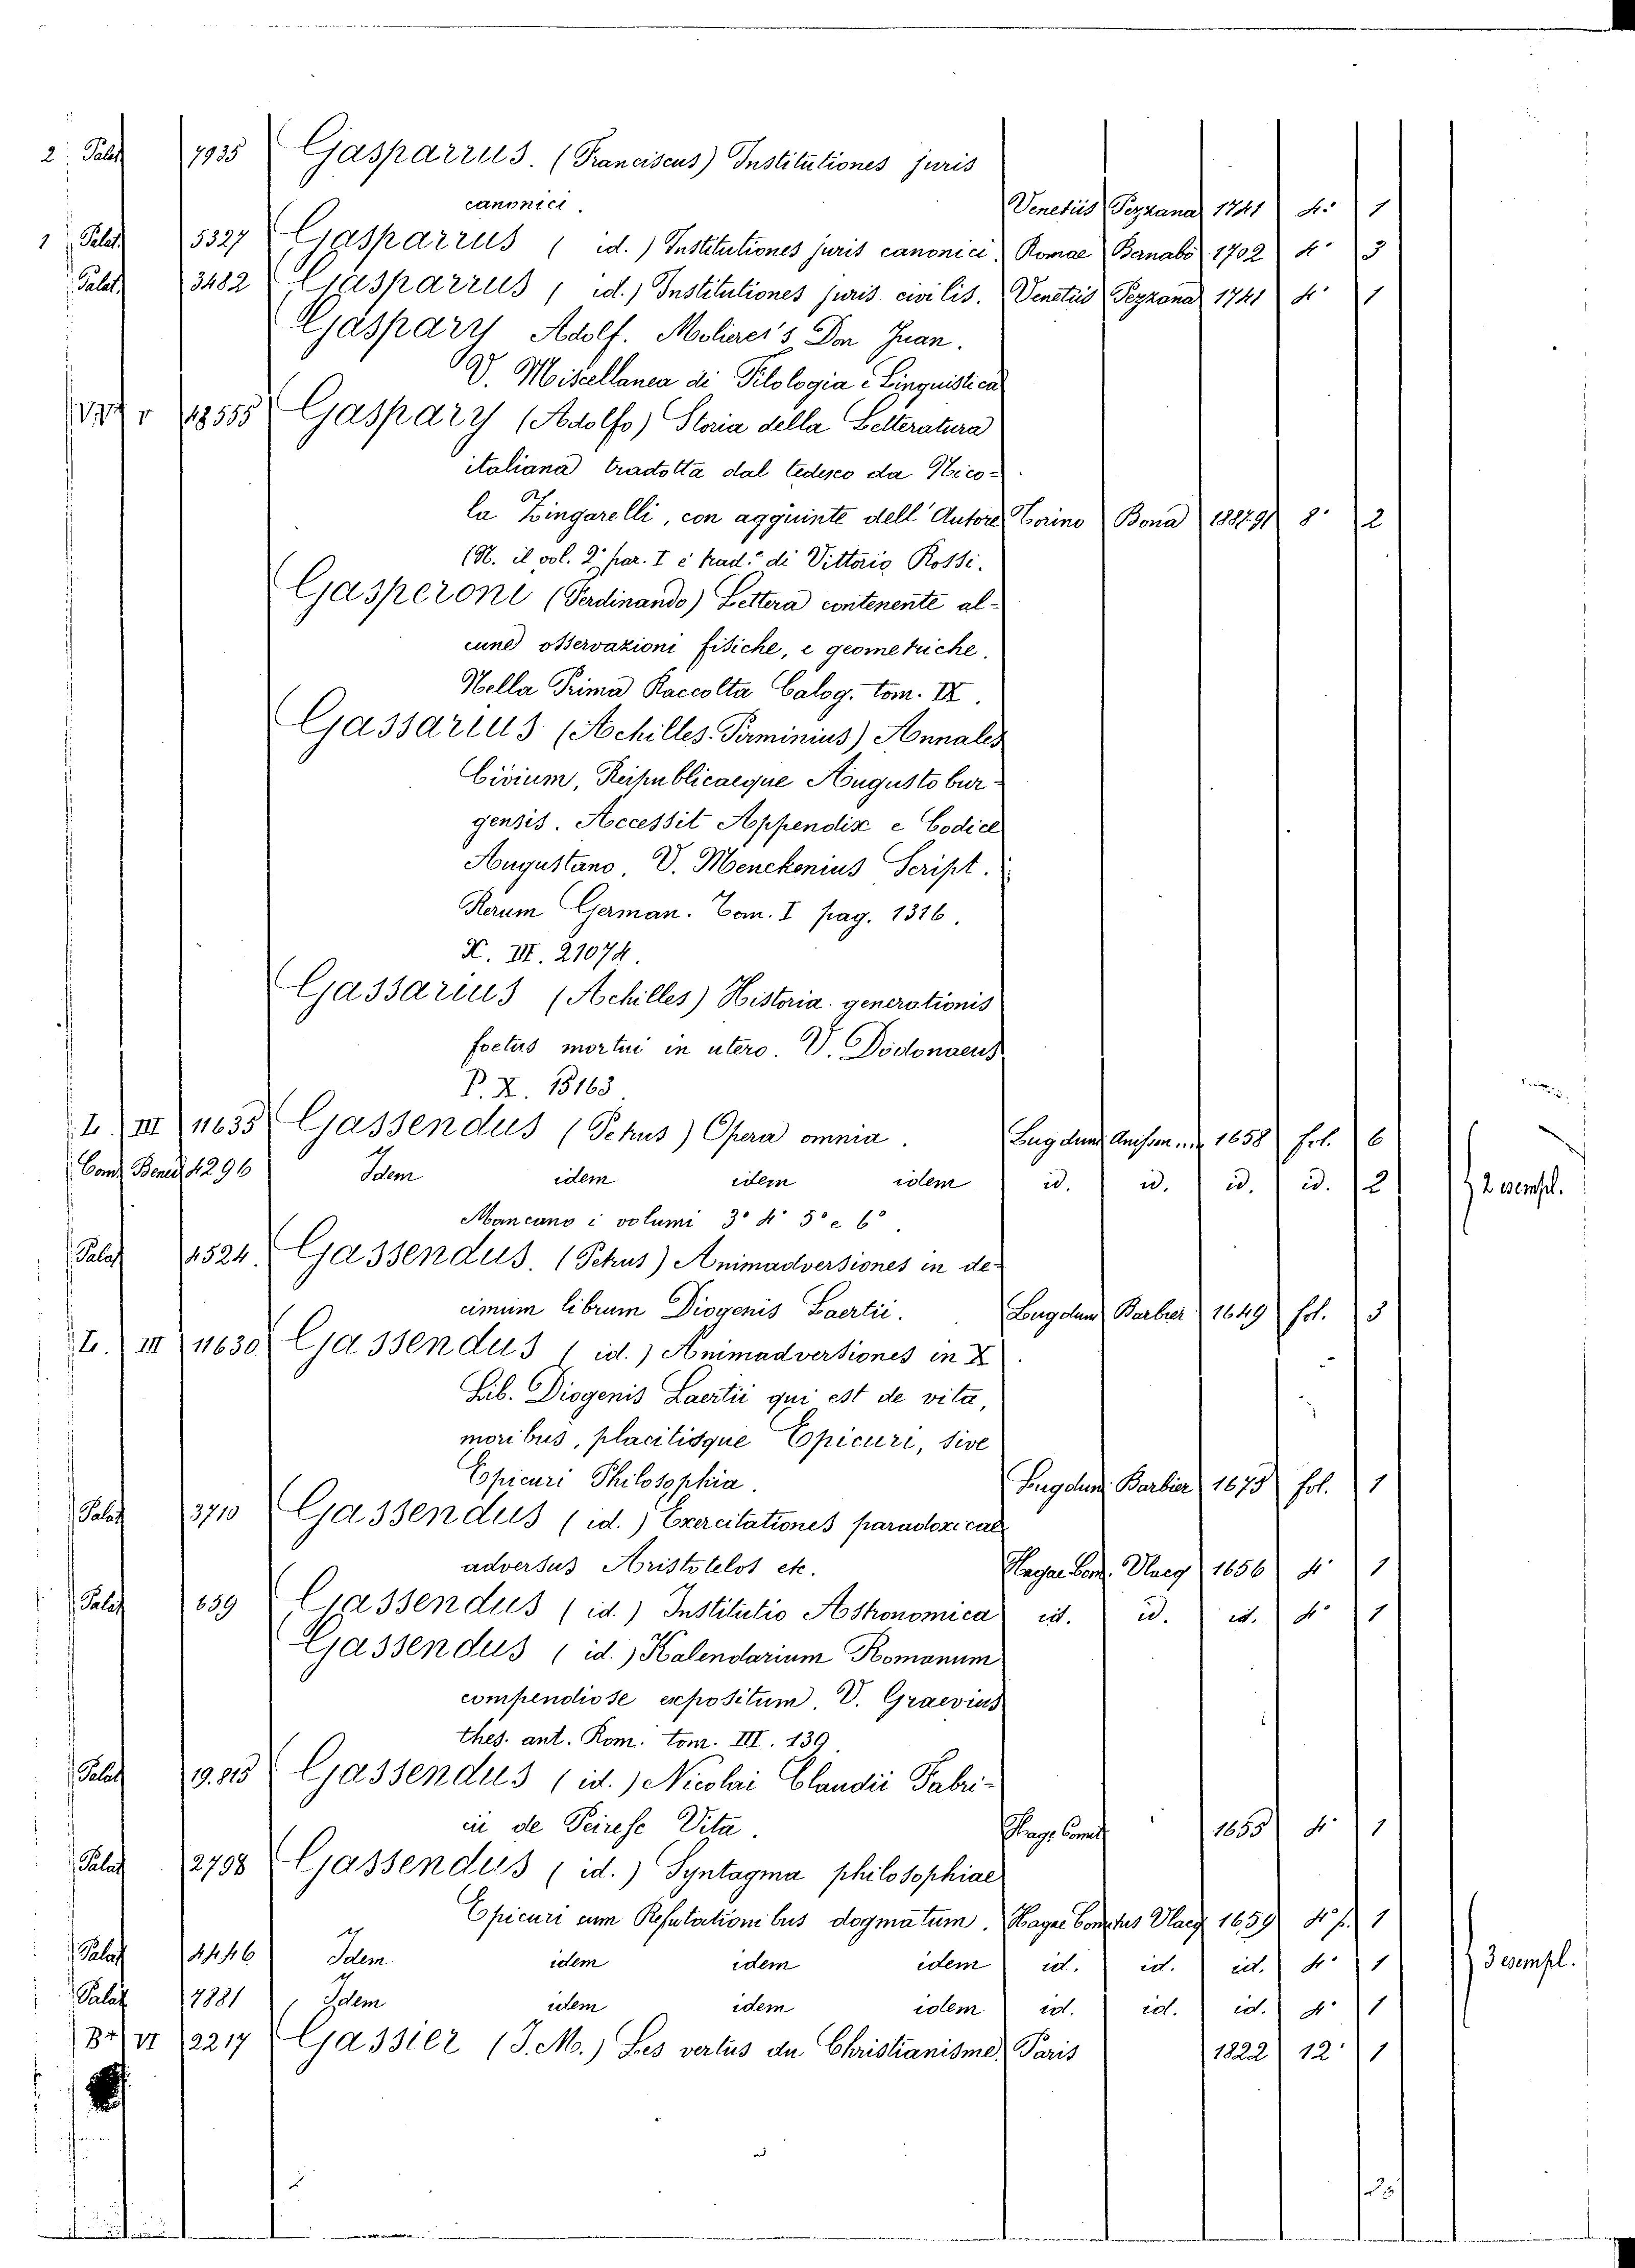 2. Palat 7935 Gasparrus. (Franciscus) Institutiones juris
canonici. Venetiis Pezzana 1741 4.° 1
1 Palat. 5327 Gasparrus (id.) Institutiones juris canonici. Romae Barnabò 1702 4° 3
Palat. 3482 Gasparrus (id.) Institutiones juris civilis. Venetiis Pezzana 1741 4° 1
Gaspary Adolf. Molieres's Don Juan.
V. Miscellanea di Filologia e Linguistica
V 18555 Gaspary (Adolfo) Storia della Letteratura
italiana tradotta dal tedesco da Nico-
la Zingarelli, con aggiunte dell'Autore Torino Bona 1887.91 8° 2
(N. il vol. 2° par. I è trad.° di Vittorio Rossi.
Gasperoni (Ferdinando) Lettera contenente al-
cune osservazioni fisiche, e geometriche.
Nella Prima Raccolta Calog. tom. IX.
Gassarius (Achilles Pirminius) Annales
Civium, Reipublicaeque Augustobur-
gensis. Accessit Appendix e Codice
Augustano. V. Menckenius Script.
Rerum German. Tom. I pag. 1316.
X. III. 21074.
Gassarius (Achilles) Historia generationis
foetus mortui in utero. V. Dodonaeus
P. X. 15163
L. III 11635 Gassendus (Petrus) Opera omnia. Lugdun 1658 fol. 6
Com Bened 4296 Idem idem idem idem id. id. id. id. 2 2 esempl.
Mancano i volumi 3° 4° 5° e 6°.
Palat 4524. Gassendus. (Petrus) Animadversiones in de-
cimum librum Diogenis Laertii. Lugdun Barbier 1649 fol. 3
L. III 11630 Gassendus (id.) Animadversiones in X
Lib. Diogenis Laertii qui est de vita,
moribus, placitisque Epicuri, sive
Epicuri Philosophia. Lugdun. Barbier 1675 fol. 1
Palat 3710 Gassendus (id.) Exercitationes paradoxicae
adversus Aristotelos etc. Hagae Com. Vlacq 1656 4° 1
Palat 659 Gassendus (id.) Institutio Astronomica id. id. id. 4° 1
Gassendus (id.) Kalendarium Romanum
compendiose expositum. V. Graevius
thes. ant. Rom. tom. III. 139.
Palat 19.815 Gassendus (id.) Nicolai Claudii Fabri-
cii de Peiresc Vita. Hage Comit 1655 4° 1
Palat 2798 Gassendus (id.) Syntagma philosophiae
Epicuri cum Refutationibus dogmatum. Hagae Comitus Vlacq 1659 4° p. 1
Palat 4446 Idem idem idem idem id. id. id. 4° 1 3 esempl.
Palat 7881 Idem idem idem idem id. id. id. 4° 1
Br VI 2217 Gassier (J. M.) Les vertus du Christianisme. Paris 1822 12° 1